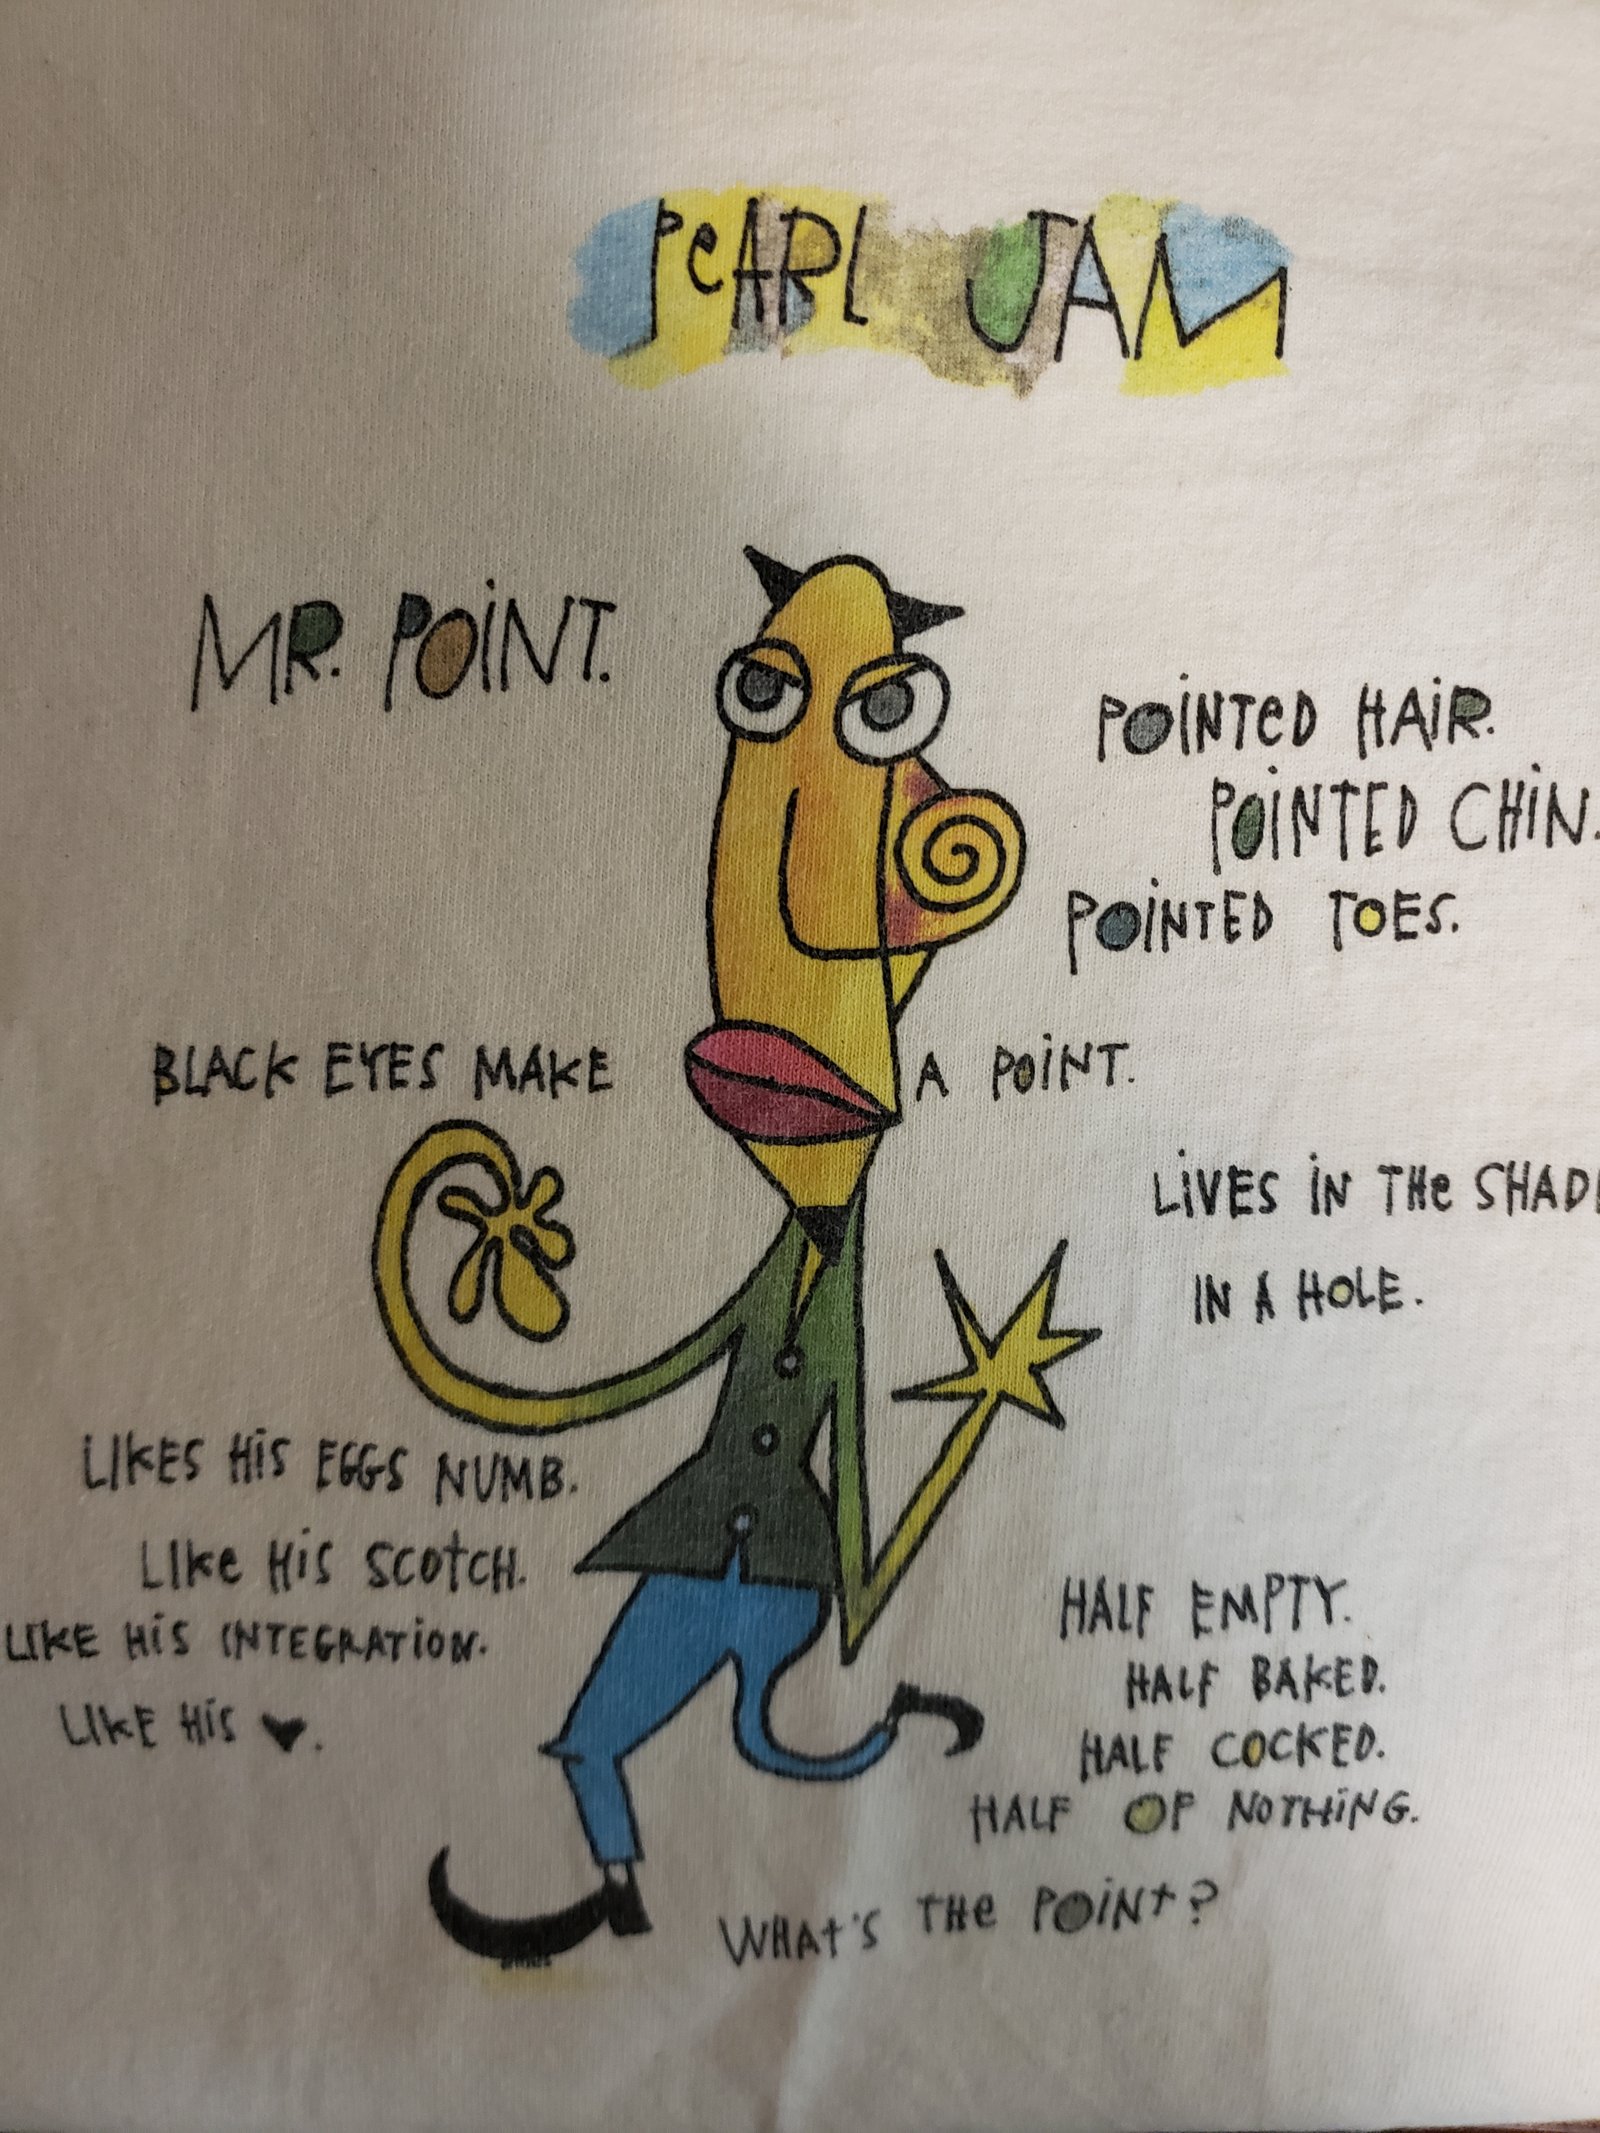 PeARL JAM
MR. POiNT.
POiNTeD HAiR.
POiNTED CHiN.
POiNTED TOES.
BLACK EYES MAKE A POiNT.
LiVES iN THe
IN A HOLE.
LIKES HiS EGGS NUMB.
LIKe HiS SCOtCH.
LIKE HiS INTEGRATiON.
LIKE HiS ♥.
HALF EMPTY.
HALF BAKED.
HALF COCKED.
HALF OF NOTHiNG.
WHAt'S THe POiNt?